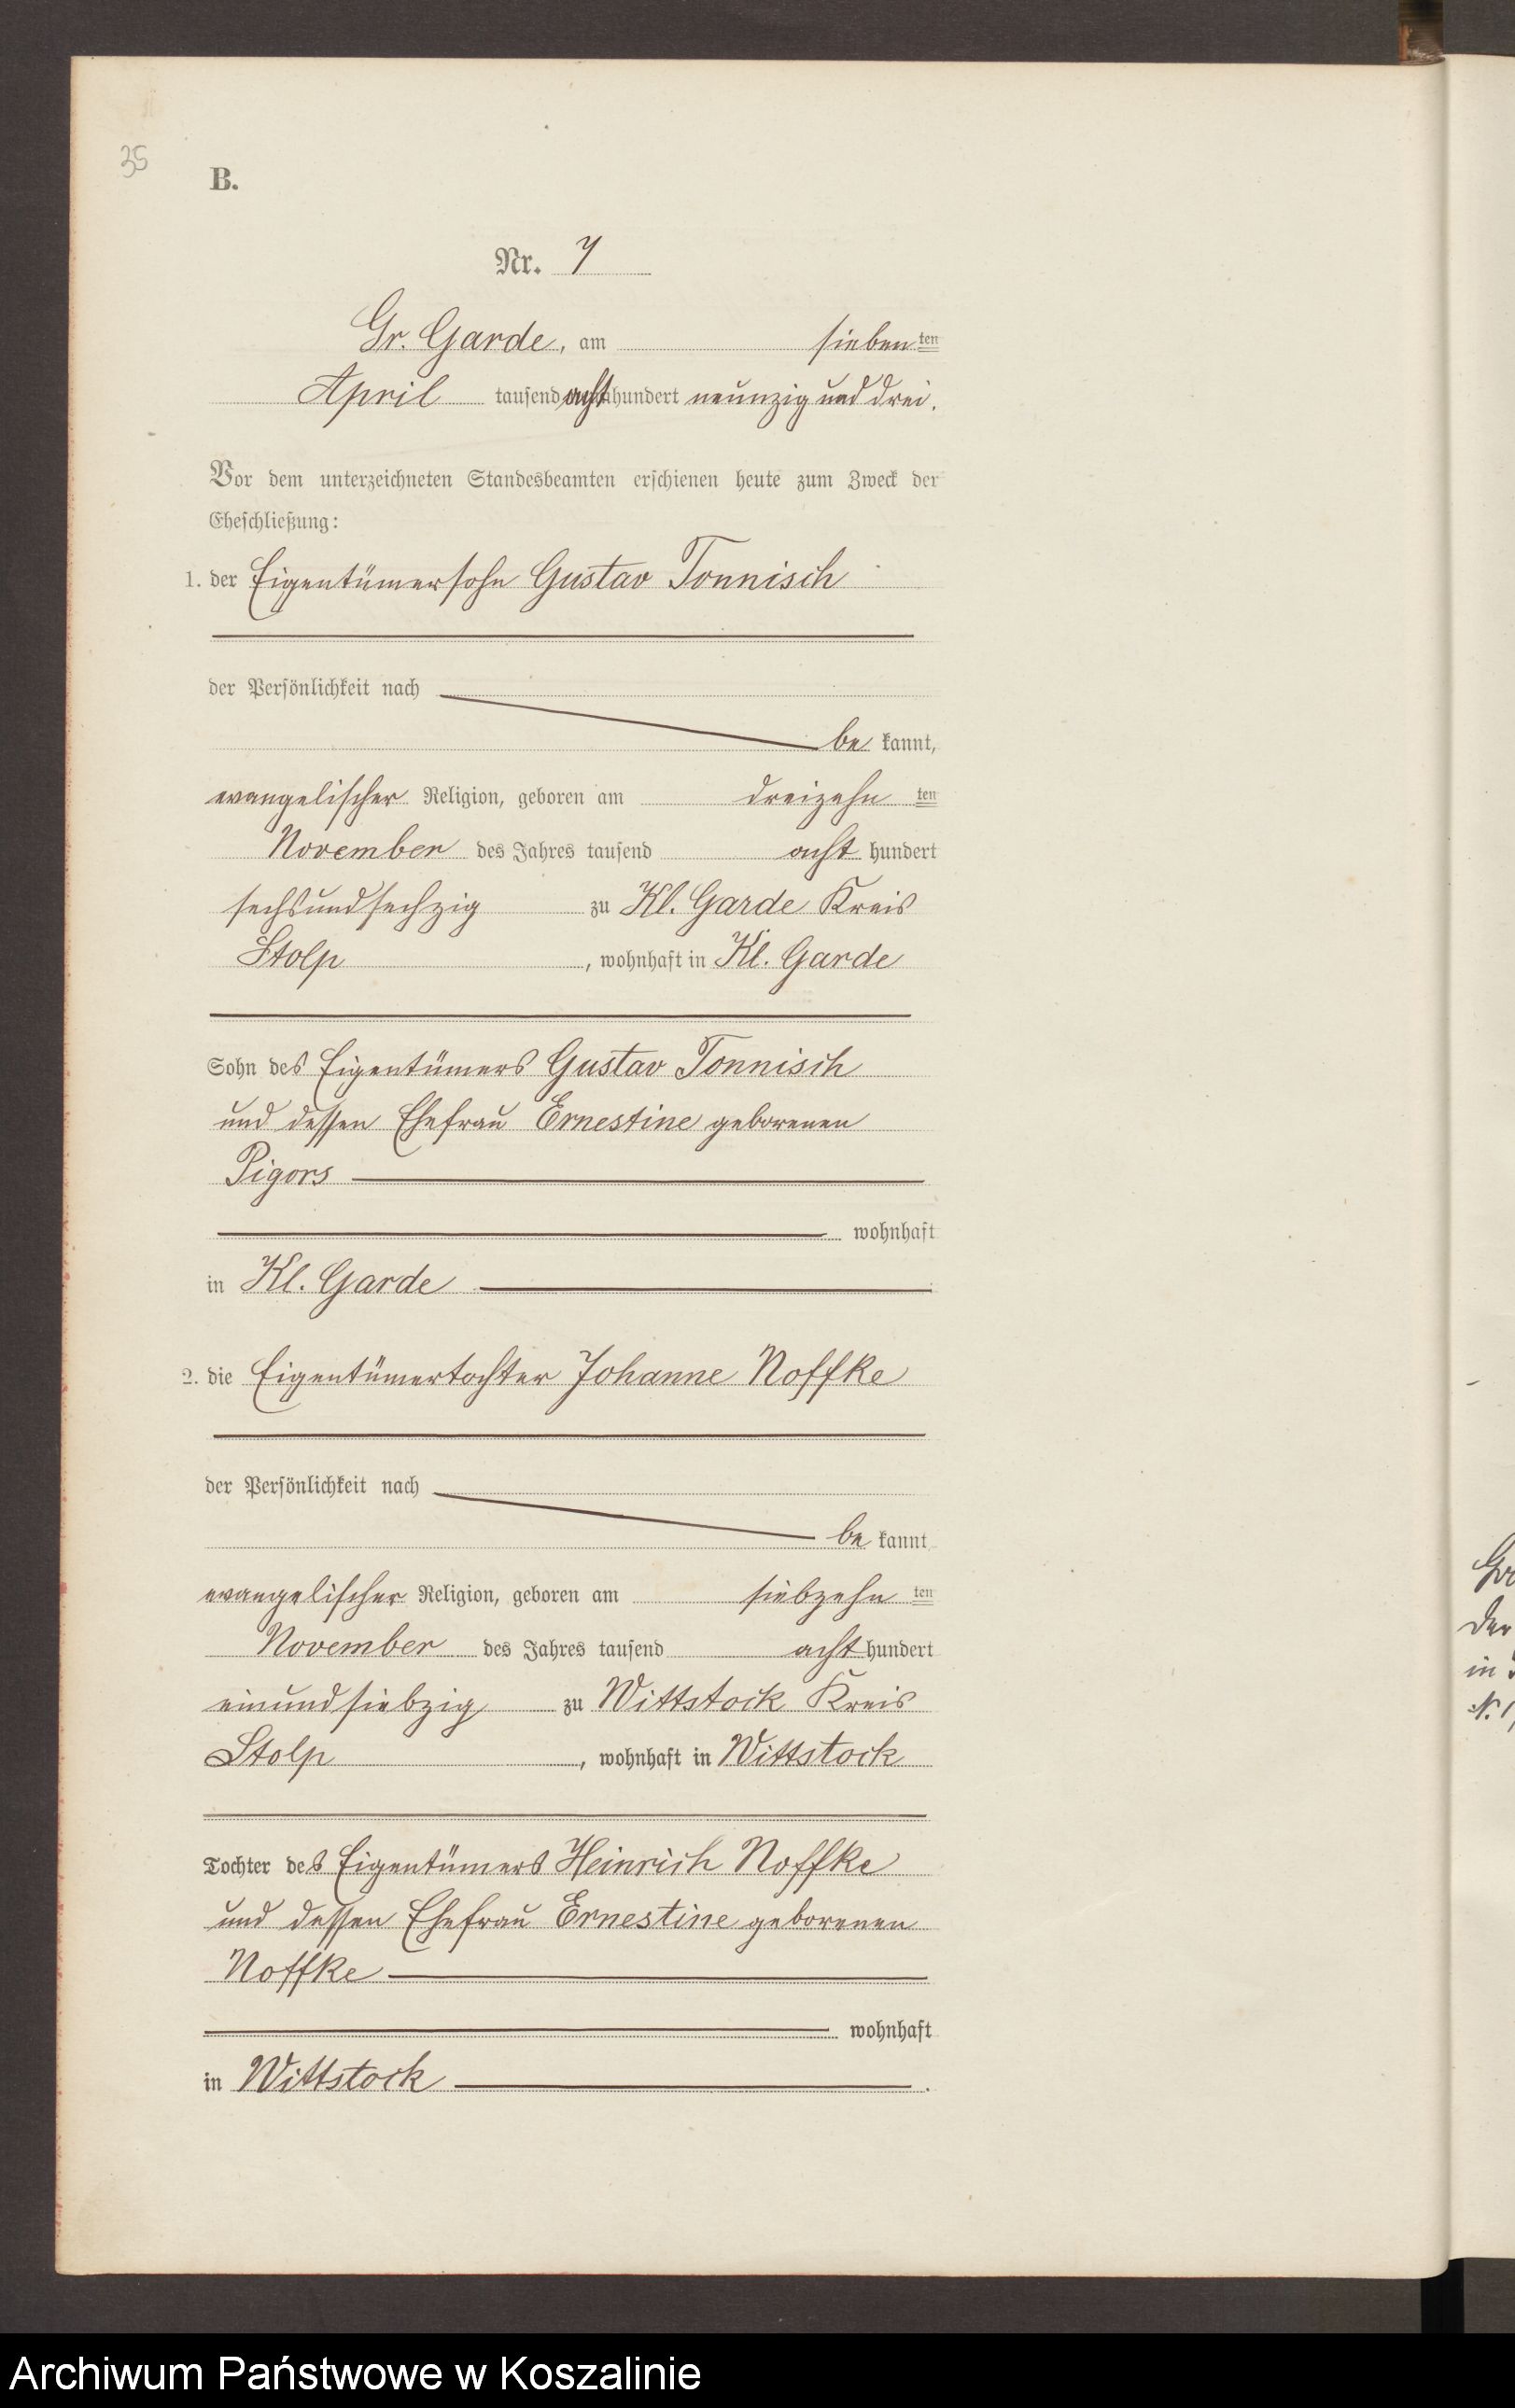 35
B.
Nr. 7
Gr. Garde, am sieben ten
April tausend acht hundert neunzig und drei.
Vor dem unterzeichneten Standesbeamten erschienen heute zum Zweck der
Eheschließung:
1. der Eigentümersohn Gustav Tonnisch
der Persönlichkeit nach
be kannt,
evangelischer Religion, geboren am dreizehn ten
November des Jahres tausend acht hundert
sechsundsechzig zu Kl. Garde Kreis
Stolp, wohnhaft in Kl. Garde
Sohn des Eigentümers Gustav Tonnisch
und dessen Ehefrau Ernestine geborenen
Pigors
wohnhaft
in Kl. Garde
2. die Eigentümertochter Johanne Noffke
der Persönlichkeit nach
be kannt
evangelischer Religion, geboren am siebzehn ten
November des Jahres tausend acht hundert
einundsiebzig zu Wittstock Kreis
Stolp, wohnhaft in Wittstock
Tochter des Eigentümers Heinrich Noffke
und dessen Ehefrau Ernestine geborenen
Noffke
wohnhaft
in Wittstock.
Archiwum Państwowe w Koszalinie